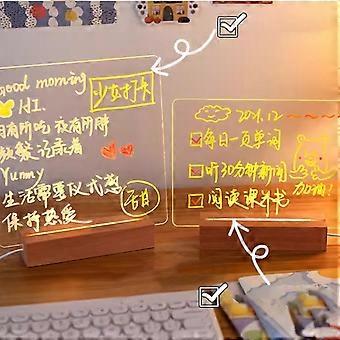 good morning
少女打卡
HI.
日有所吃 夜有所胖
放餐记录着
Yummy
生活需要仪式感
保持热爱
2021.12
每日一页单词
听30分钟新闻
阅读课外书
加油!